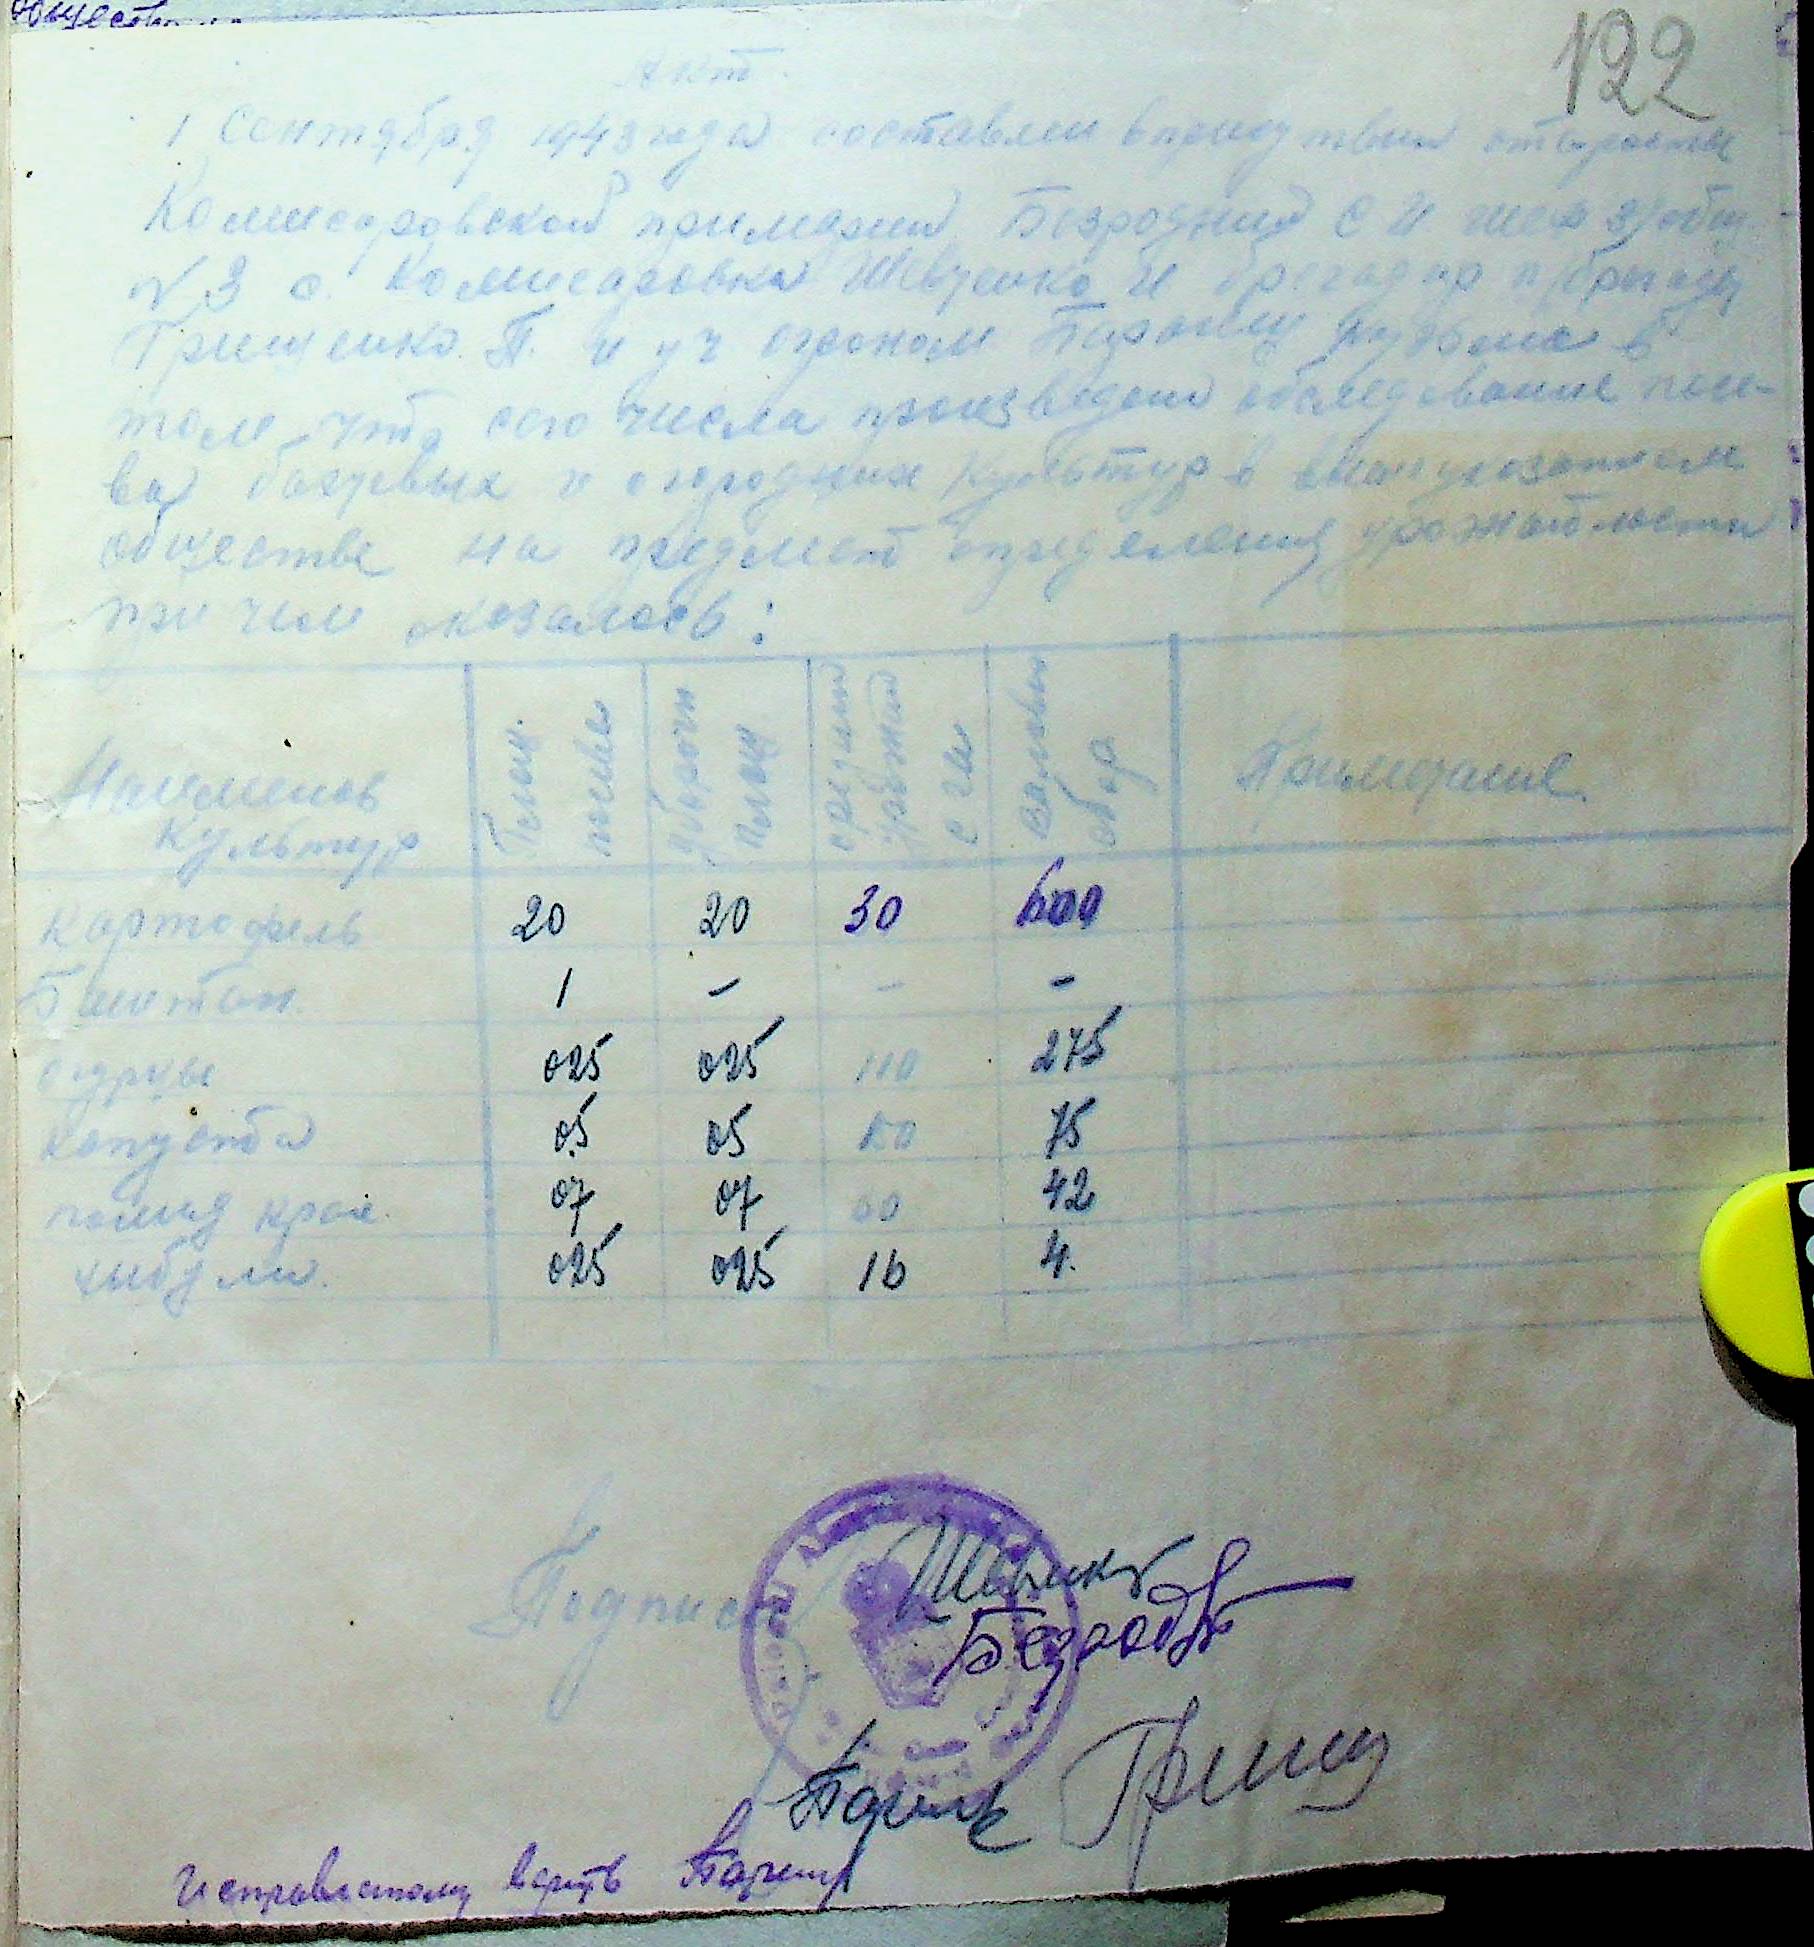 122
Акт.
1 Сентября 1943 года составлен в присутствии старосты
Комисаровской примарии Безродний С И
N 3 с. Комисаровка Шевченко и бригадир
Грищенко П. и уч огроном в
том что сего числа произведено обследование посе-
ва и огородних культур в вышеуказанном
обществе на предмет определения урожайности
при чем оказалось:
Наименов культур Площ посева Уборочн площ средний урожай с га валовый сбор Примечание
Картофель 20 20 30 600
Баштан. 1 - - -
огурцы 025 025 110 275
Капуста 05 05 75
помид крас. 07 07 60 42
цибули. 025 025 16 4.
Подписи Шевченко
Безродн
Грищ
Исправленому верить